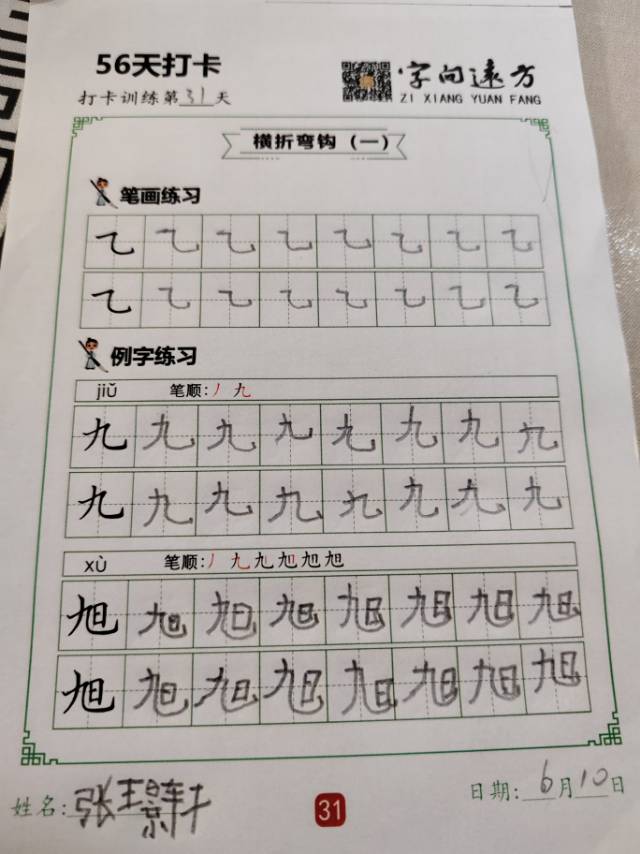 56天打卡
打卡训练第31天
字向远方
ZI XIANG YUAN FANG
横折弯钩（一）
笔画练习
㇈ ㇈ ㇈ ㇈ ㇈ ㇈ ㇈ ㇈
㇈ ㇈ ㇈ ㇈ ㇈ ㇈ ㇈ ㇈
例字练习
jiǔ 笔顺:丿 九
九 九 九 九 九 九 九 九
九 九 九 九 九 九 九 九
xù 笔顺:丿 九 九 旭 旭 旭
旭 旭 旭 旭 旭 旭 旭 旭
旭 旭 旭 旭 旭 旭 旭 旭
姓名: 张璟轩
31
日期: 6月10日